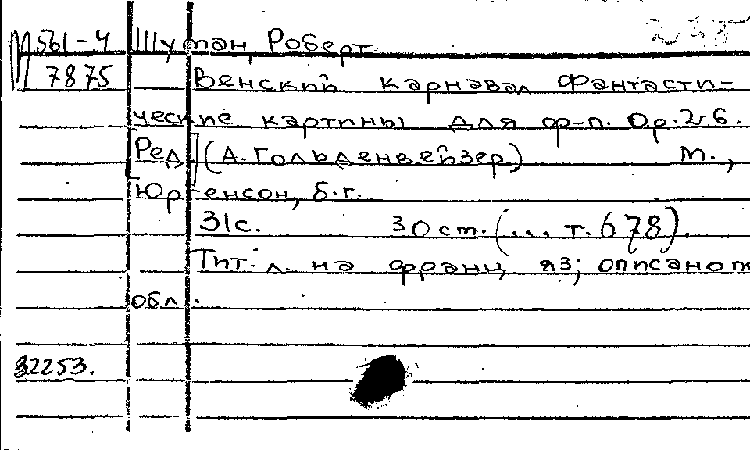 М 561-4 Шуман, Роберт
7875 Венский карнавал Фантасти-
ческие картины для ф-п. Ор. 26.
Ред. (А. Гольденвейзер) М.,
Юргенсон, б.г.
31с. 30 ст. (... т. 678).
Тит. л. на франц. яз; описанот
обл.
32253.